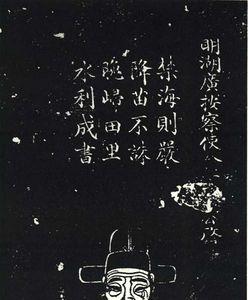 明湖廣按察使公啓
禁海則嚴
降苗不誅
晚歸田里
水利成書